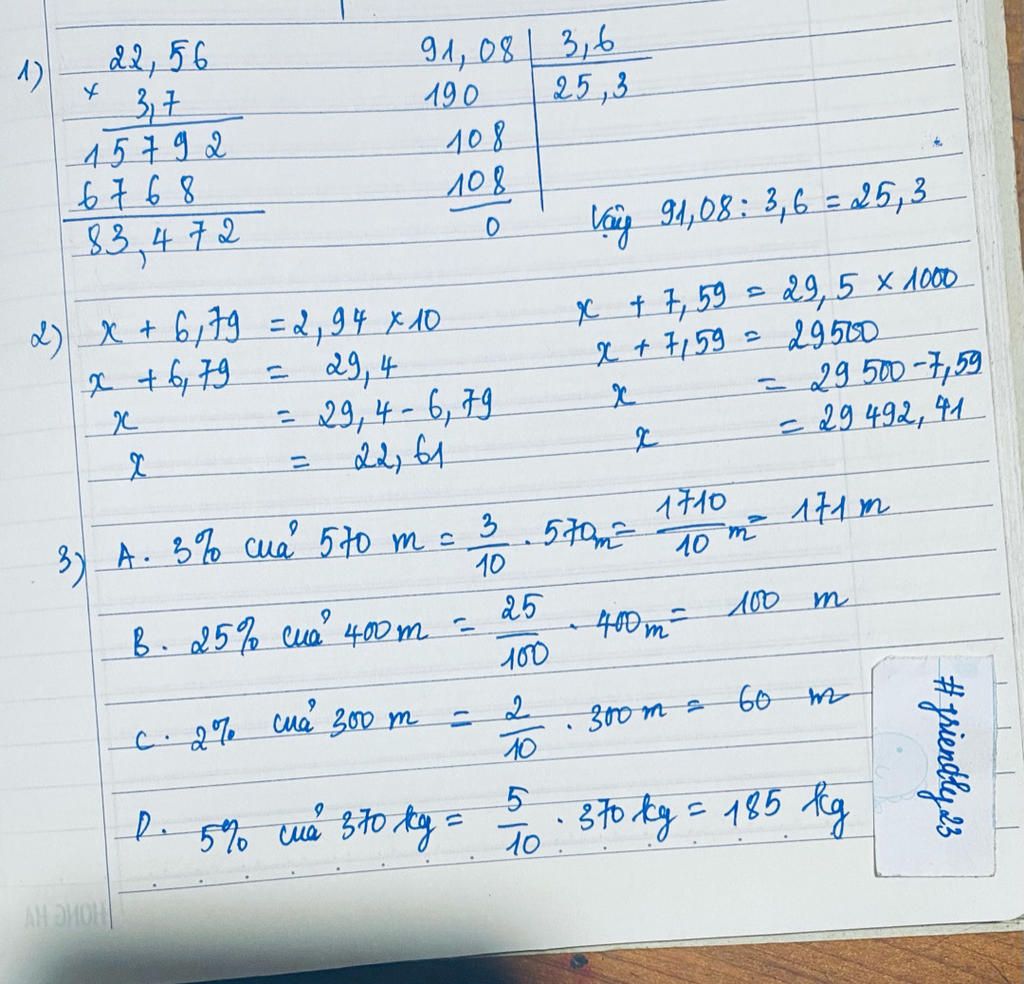 1)
22,56
x 3,7
15792
6768
83,472
91,08 | 3,6
190 | 25,3
108
108
0
Vậy 91,08 : 3,6 = 25,3
2)
x + 6,79 = 2,94 x 10
x + 6,79 = 29,4
x = 29,4 - 6,79
x = 22,61
x + 7,59 = 29,5 x 1000
x + 7,59 = 29500
x = 29500 - 7,59
x = 29492,41
3) A. 3% cuả 570 m = 3/10 . 570m = 1710/10 m = 171 m
B. 25% cuả 400m = 25/100 . 400m = 100 m
C. 2% cuả 300 m = 2/10 . 300 m = 60 m
D. 5% cuả 370 kg = 5/10 . 370 kg = 185 kg
#friendly23
HONG HA